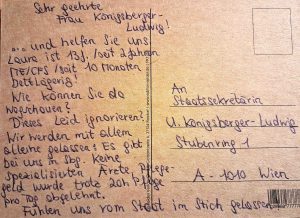 Sehr geehrte
Frau Königsberger-
Ludwig!
... und helfen Sie uns.
Laura ist 13J. / seit 2 Jahren
ME/CFS / seit 10 Monaten
Bettlägerig!
Wie können Sie da
wegschauen?
Dieses Leid ignorieren?
Wir werden mit allem
alleine gelassen! Es gibt
bei uns in Sbg. keine
spezialisierten Ärzte Pflege-
geld wurde trotz 20h Pflege
pro Tag abgelehnt.
Fühlen uns vom Staat im Stich gelassen
An
Staatssekretärin
U. Königsberger-Ludwig
Stubenring 1
A-1010 Wien